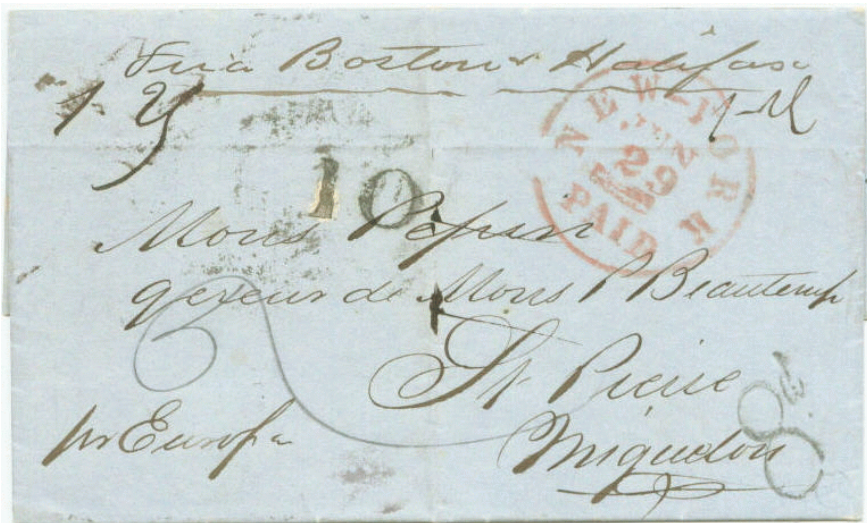 via Boston & Halifax
10
NEW-YORK
JUN
29
PAID
Mons Papin
gereur de Mons P Beautemp
St Pierre
Miquelon
pr Europa
8d